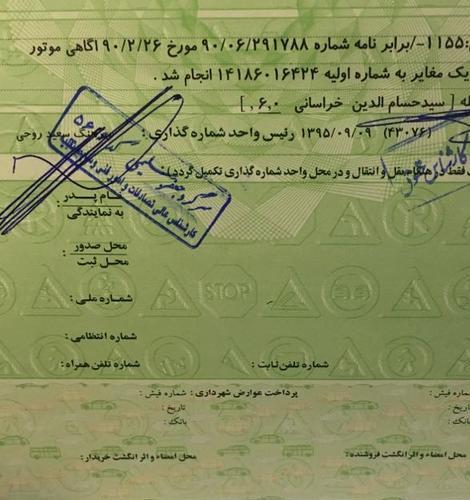 ۱۱۵۵-/برابر نامه شماره ۹۰/۰۶/۲۹۱۷۸۸ مورخ ۹۰/۲/۲۶ آگاهی موتور
یک مغایر به شماره اولیه ۱۴۱۸۶۰۱۶۴۲۴ انجام شد .
[ سیدحسام الدین خراسانی ۶,۰ , ]
(۴۳۰۷۶) ۱۳۹۵/۰۹/۰۹ رئیس واحد شماره گذاری : سرهنگ سعید روحی
فقط در هنگام نقل و انتقال و در محل واحد شماره گذاری تکمیل گردد )
کارشناس
نام پدر :
به نمایندگی :
محل صدور :
محل ثبت
شماره ملی :
STOP
شماره انتظامی :
شماره تلفن ثابت : شماره تلفن همراه :
شماره فیش : پرداخت عوارض شهرداری : شماره فیش :
تاریخ : تاریخ :
بانک : بانک :
محل امضاء و اثر انگشت فروشنده : محل امضاء و اثر انگشت خریدار :